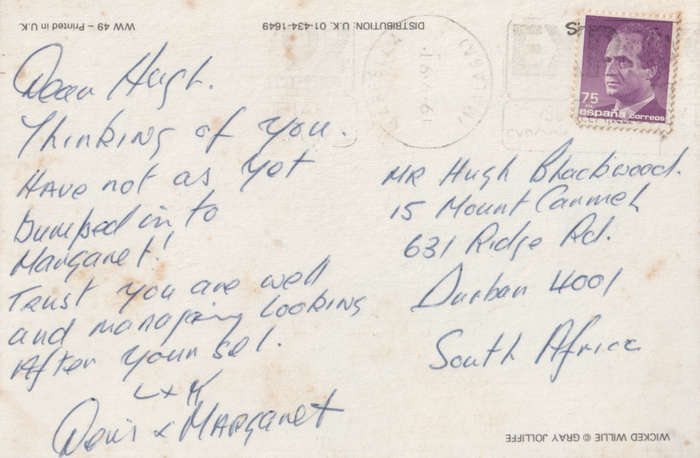 WW 49 – Printed in U.K.
DISTRIBUTION U.K. 01-434-1649
75
españa correos
Dear Hugh.
Thinking of you.
Have not as yet
bumped in to
Margaret!
Trust you are well
and managing looking
After your sel.
L x K
Doris x Margaret
MR Hugh Blackwood.
15 Mount Carmel
631 Ridge Rd.
Durban 4001
South Africa
WICKED WILLIE © GRAY JOLLIFFE